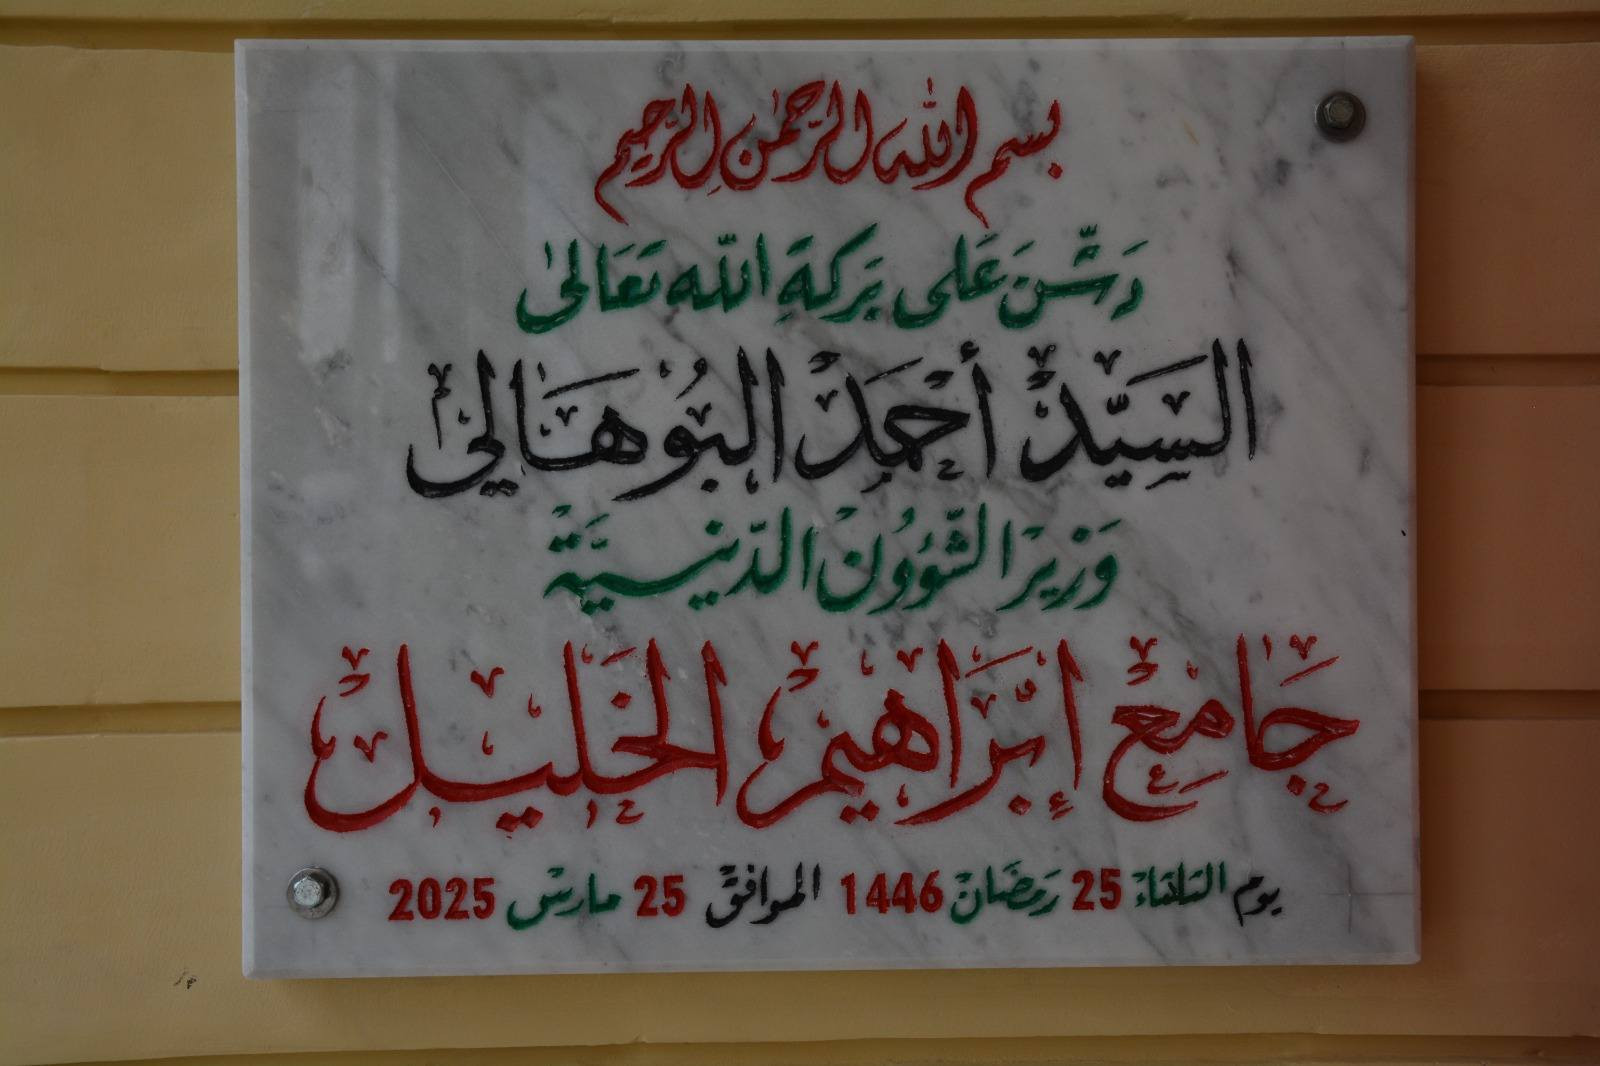 بسم الله الرحمن الرحيم
دَشَّنَ عَلى بَركَةِ اللّه تَعَالىٰ
السَيِّدْ أحْمَدْ البُوهَالي
وَزيرْ الشّؤُونْ الدّينيَّة
جَامعْ إبْرَاهيمْ الخَليلْ
يوم الثلاثاء 25 رَمضَانْ 1446 الموافق 25 مارسْ 2025